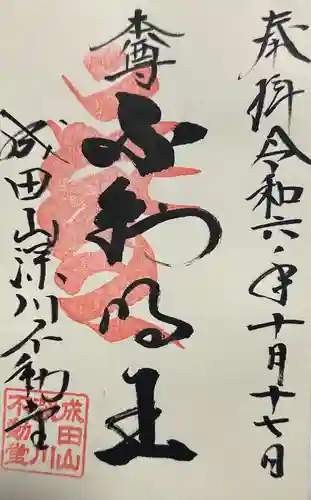 奉拝 令和六年十月十七日
本尊
不動明王
成田山深川不動堂
成田山
深川
不動堂